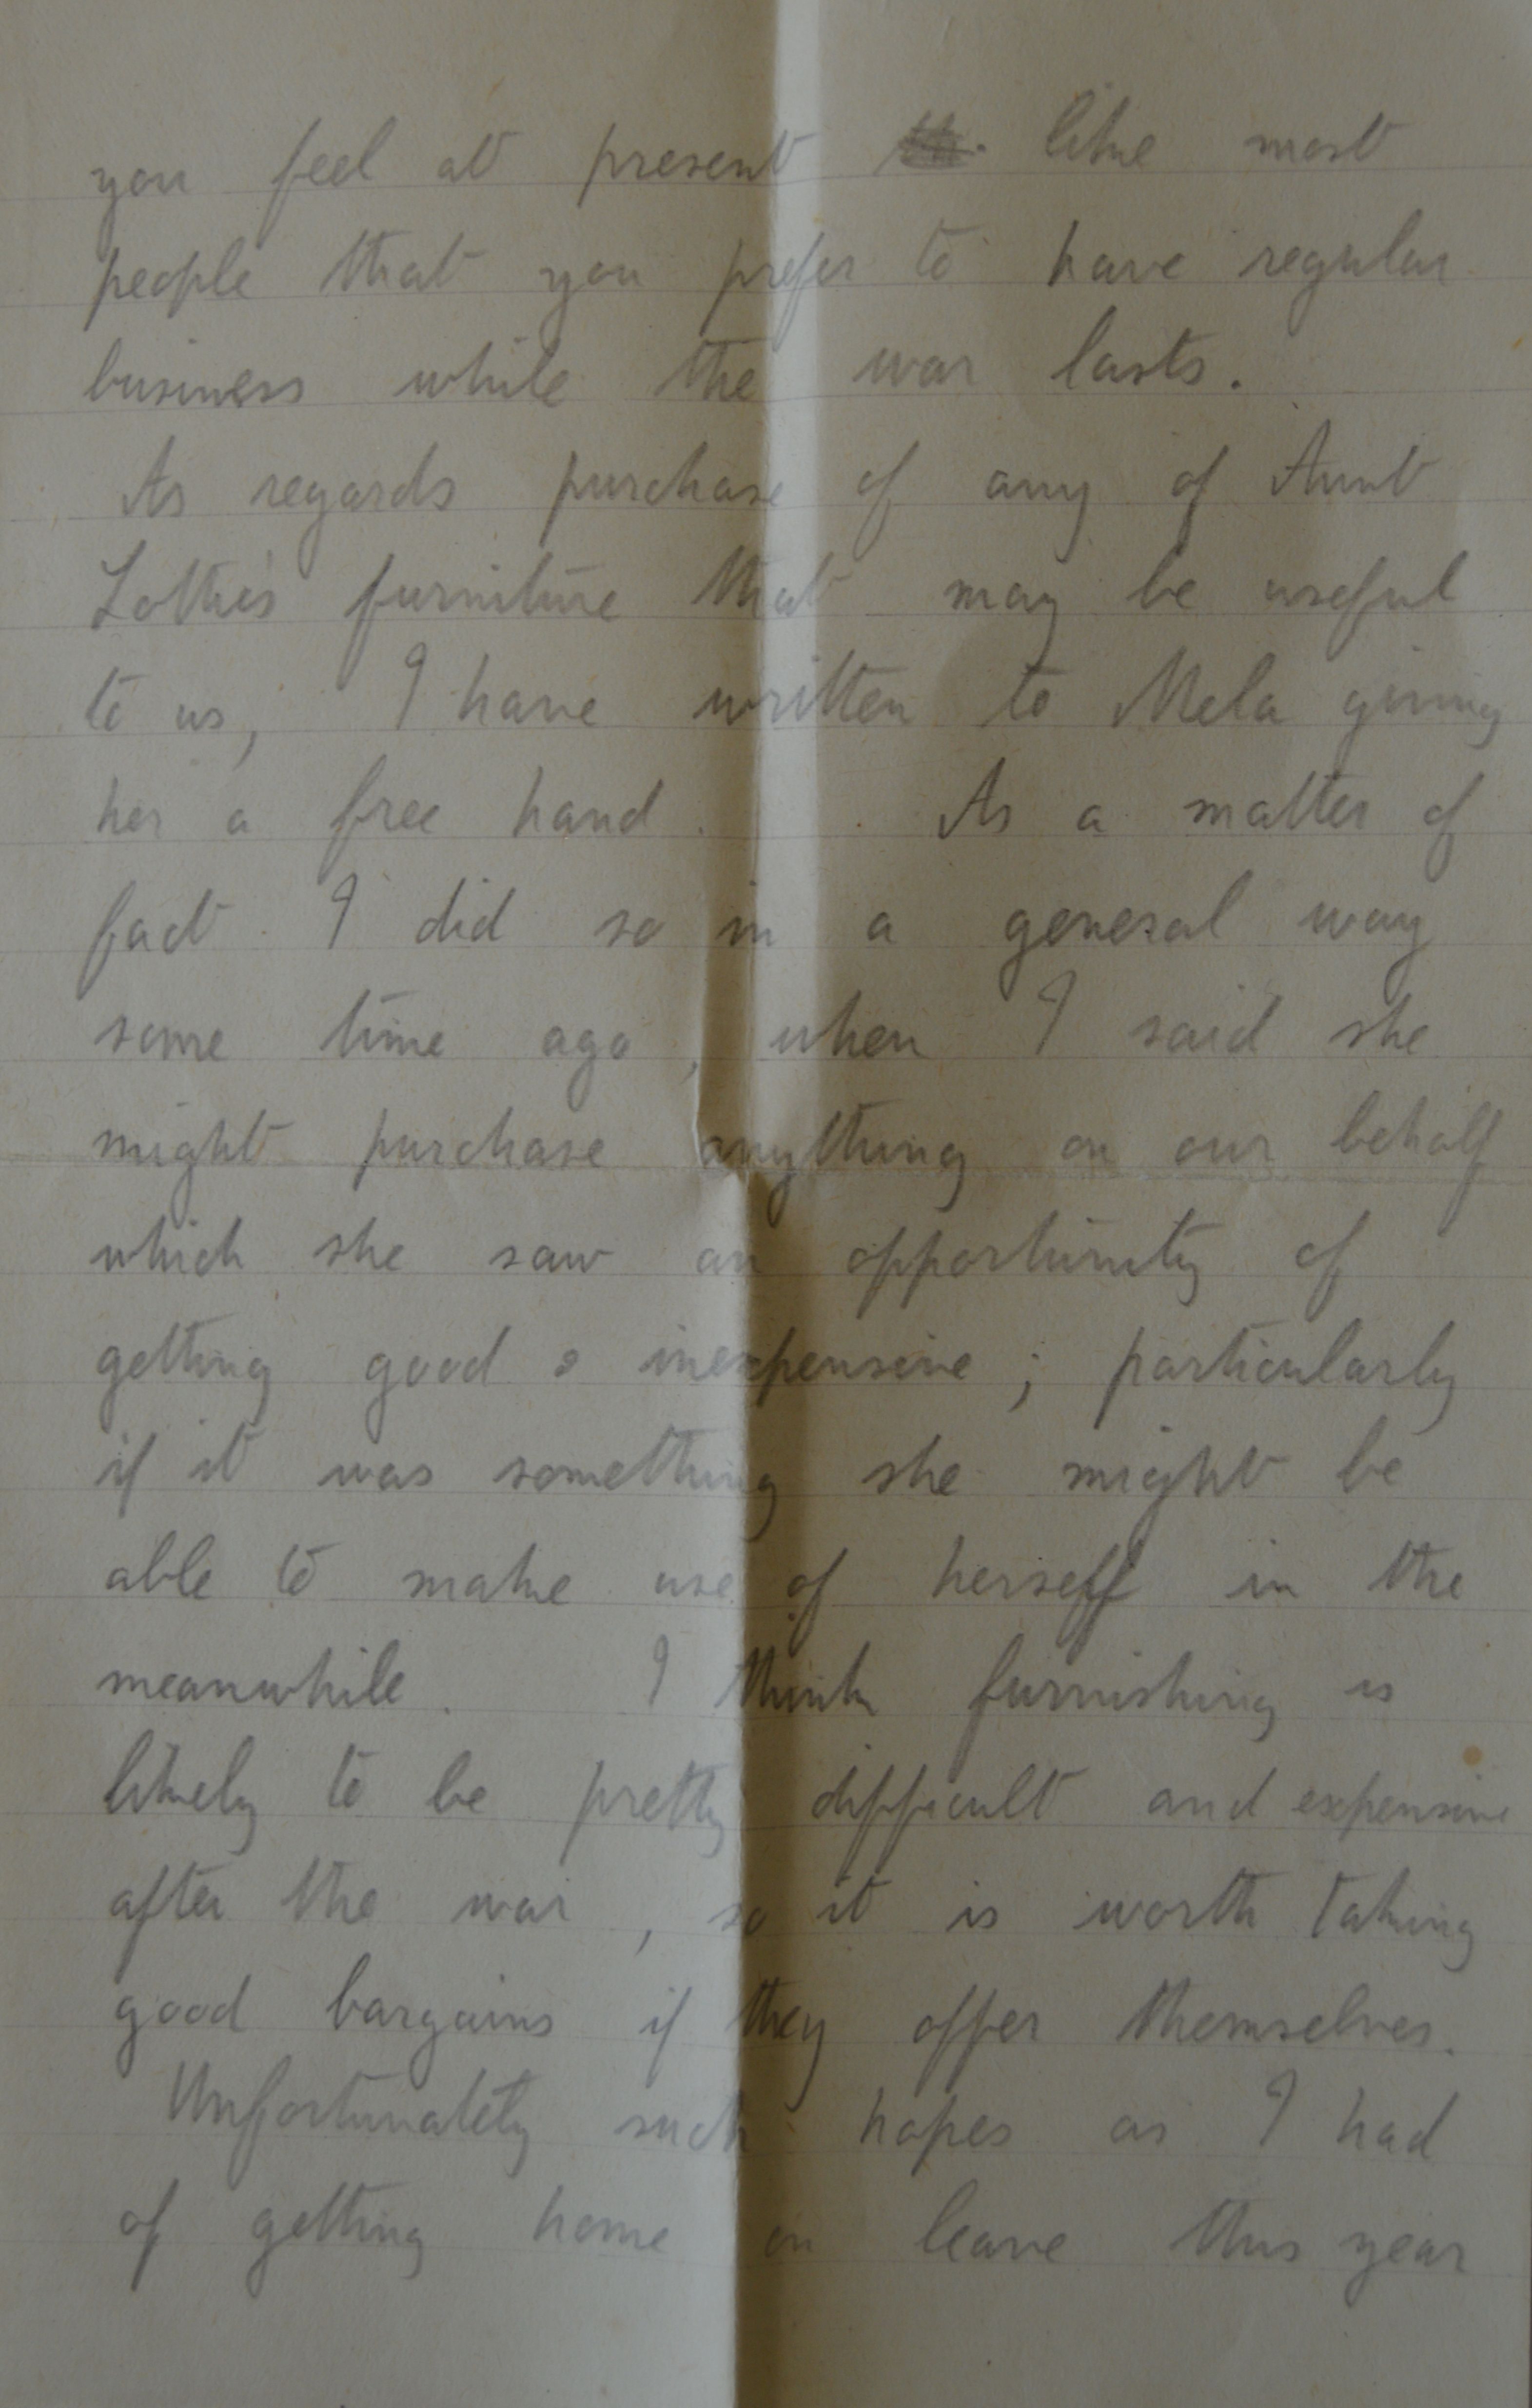 you feel at present like most
people that you prefer to have regular
business while the war lasts.
As regards purchase of any of Aunt
Lottie's furniture that may be useful
to us, I have written to Mela giving
her a free hand. As a matter of
fact I did so in a general way
some time ago, when I said she
might purchase anything on our behalf
which she saw an opportunity of
getting good & inexpensive; particularly
if it was something she might be
able to make use of herself in the
meanwhile. I think furnishing is
likely to be pretty difficult and expensive
after the war, so it is worth taking
good bargains if they offer themselves.
Unfortunately such hopes as I had
of getting home on leave this year